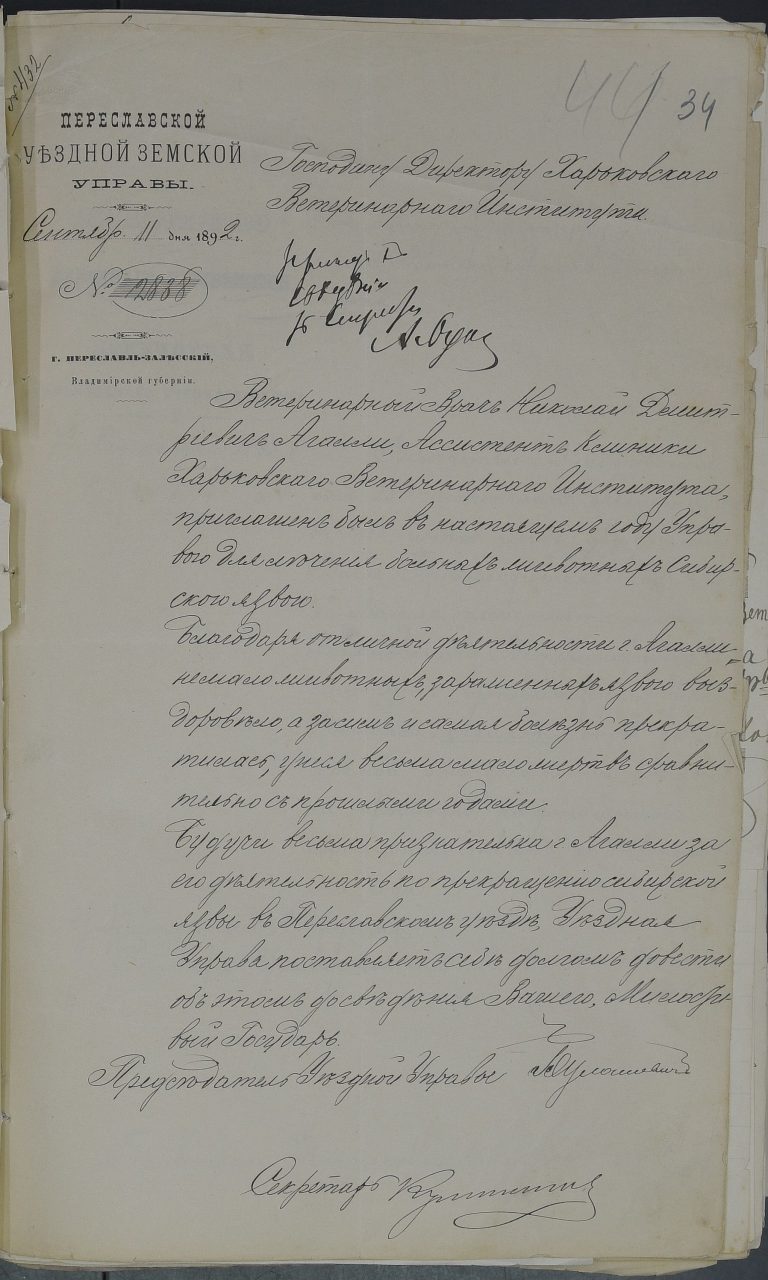 № 1132
44 34
ПЕРЕСЛАВСКОЙ
УѢЗДНОЙ ЗЕМСКОЙ
УПРАВЫ.
Сентябр. 11 дня 1892 г.
№ 2838
Г. ПЕРЕСЛАВЛЬ-ЗАЛѢССКІЙ,
Владимірской губерніи.
Господину Директору Харьковскаго
Ветеринарнаго Института.
Ветеринарный Врачъ Николай Дмит-
ріевичъ Агалли, Ассистентъ Клиники
Харьковскаго Ветеринарнаго Института,
приглашенъ былъ въ настоящемъ году Упра-
вою для лѣченія больныхъ животныхъ Сибир-
скою язвою.
Благодаря отличной дѣятельности г. Агалли,
немало животныхъ, зараженныхъ язвою выз-
доровѣло, а засимъ и самая болѣзнь прекра-
тилась, унеся весьма мало жертвъ сравни-
тельно съ прошлыми годами.
Будучи весьма признательна г. Агалли за
его дѣятельность по прекращенію сибирской
язвы въ Переславскомъ уѣздѣ, Уѣздная
Управа поставляетъ себѣ долгомъ довести
объ этомъ до свѣдѣнія Вашего, Милости-
вый Государь.
Предсѣдатель Уѣздной Управы
Секретарь